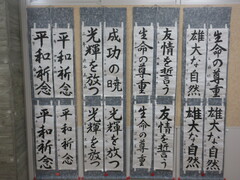 生命の尊重
雄大な自然
友情を誓う
生命の尊重
成功の暁
光輝を放つ
平和祈念
平和祈念
雄大な自然
雄大な自然
友情を誓う
生命の尊重
光輝を放つ
光輝を放つ
平和祈念
平和祈念